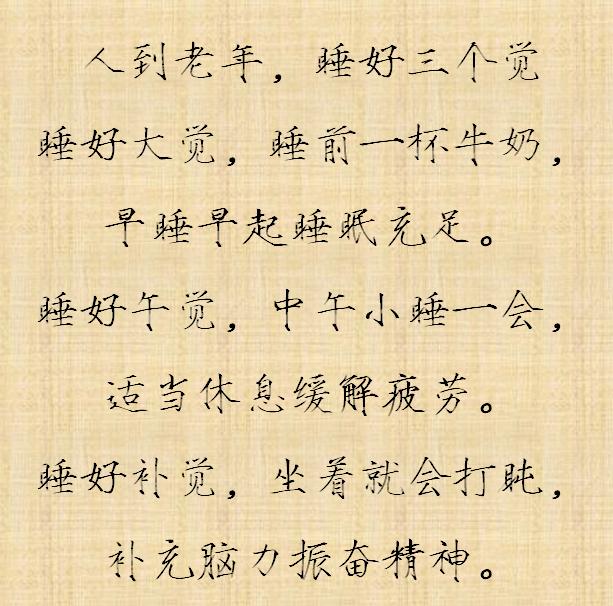 人到老年，睡好三个觉
睡好大觉，睡前一杯牛奶，
早睡早起睡眠充足。
睡好午觉，中午小睡一会，
适当休息缓解疲劳。
睡好补觉，坐着就会打盹，
补充脑力振奋精神。